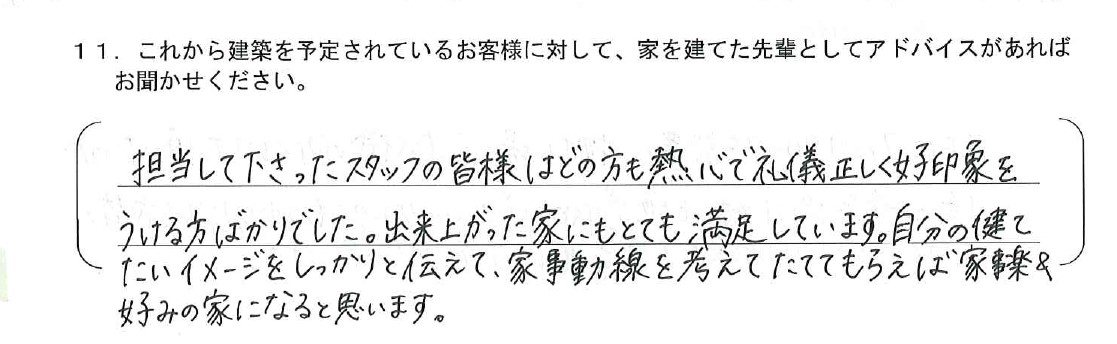 11．これから建築を予定されているお客様に対して、家を建てた先輩としてアドバイスがあれば
お聞かせください。
担当して下さったスタッフの皆様はどの方も熱心で礼儀正しく好印象を
うける方ばかりでした。出来上がった家にもとても満足しています。自分の健て
たいイメージをしっかりと伝えて、家事動線を考えてたててもらえば家事楽&
好みの家になると思います。